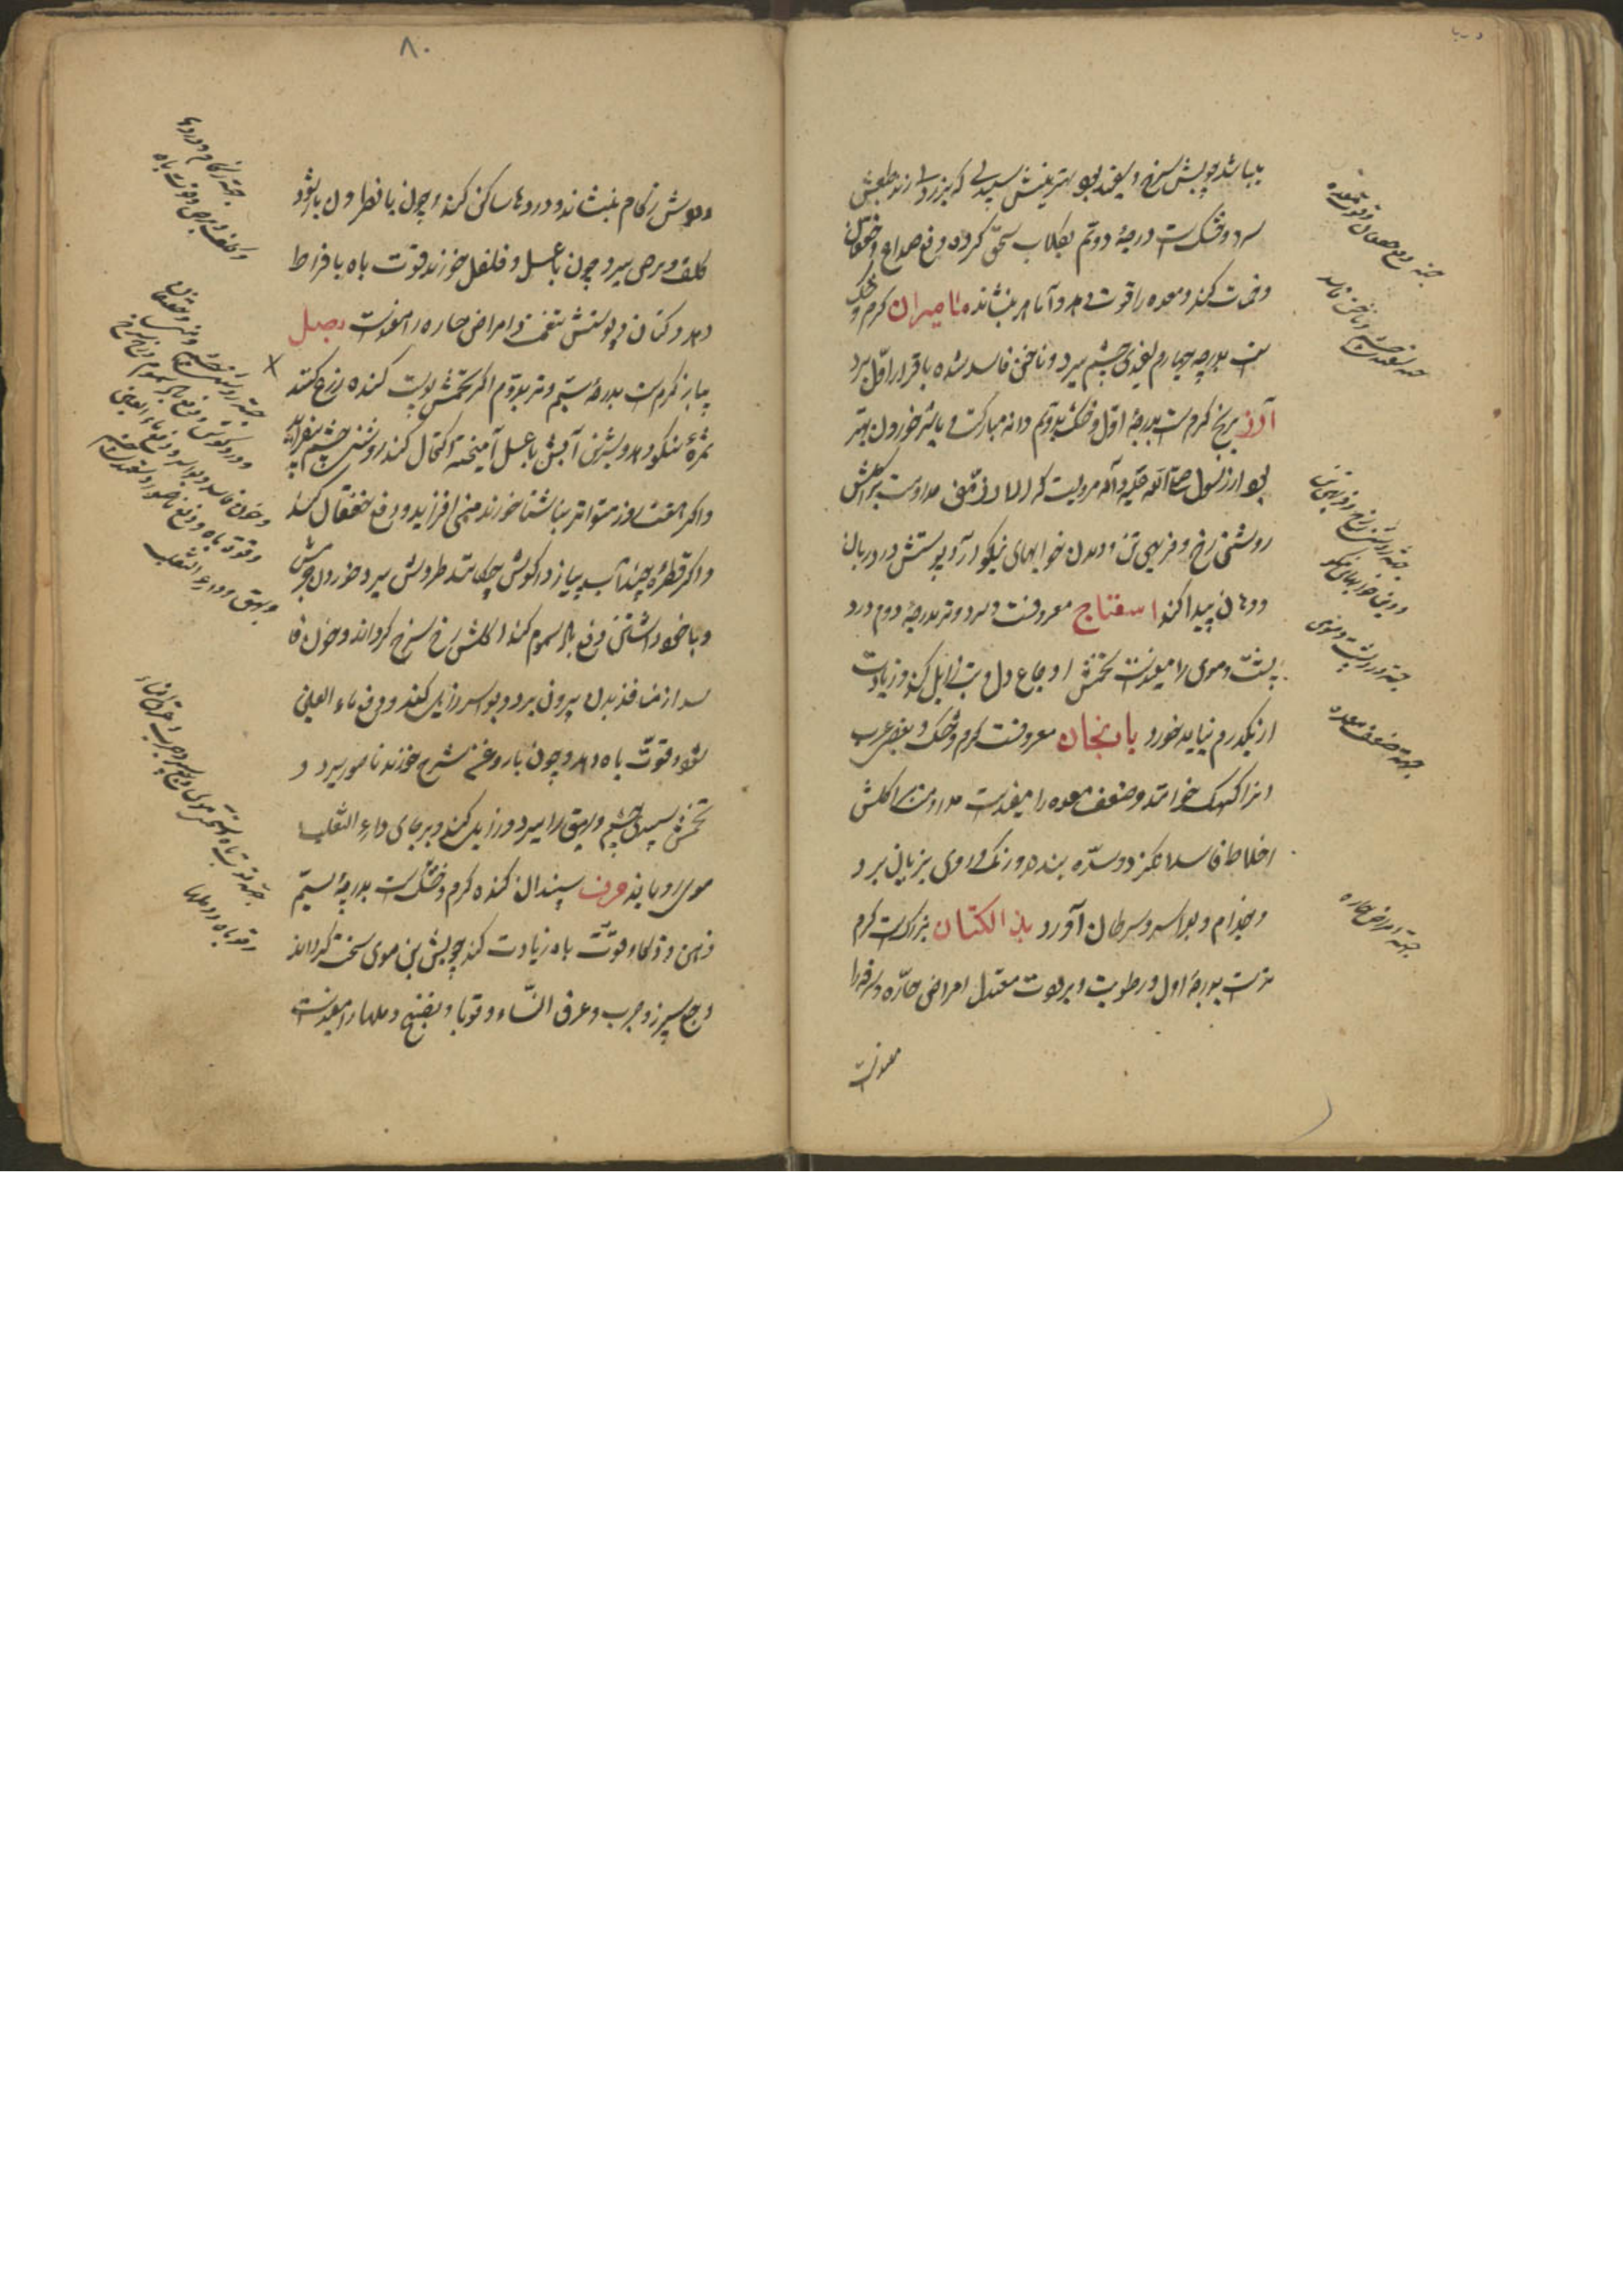 بیاشد پوسش سرخ و سفید بود بهترینش سپیدی که بزردی زند طبعش
سرد و خشکست درجهٔ دوم بکلاب سحق کرده دفع صداع و خفقان
کند و معده را قوت دهد و آماس بنشاند مامیران کرم و خشک
است بدرجه چهارم سفیدی چشم ببرد و ناخن فاسد شده باقرار اول برد
آرز برنج کرمست بدرجهٔ اول و خشک بدوم دانه مبارکست و با شیر خوردن بهتر
بود از رسول صلی الله علیه و آله مرویست که الارز منی مداومت براکلش
روشنی رخ و فربهی تن و دیدن خوابهای نیکو آرد پوستش درد زبان
و دهان پیدا کند اسفناج معروفست و سرد و تر بدرجهٔ دوم درد
پشت و موی را مفیدست تخمش اوجاع دل و تب زایل کند و زیادت
از یکدرم نباید خورد بانجان معروفست کرم و خشک و بعضی عرب
انرا کهنک خوانند و ضعف معده را مفیدست مداومت اکلش
اخلاط فاسد انکیزد و سده بندد و رنک و روی بزیان برد
و جذام و بواسیر و سرطان آورد بذر الکتان بزرکست کرم
است بدرجهٔ اول و رطوبت و یبوست معتدل امراض حاره و سرفه را
مفیدست
جهة دفع خفقان و قوت معده
جهة سفیدی چشم و ناخن فاسد
جهة روشنی رخ و فربهی تن
و دیدن خوابهای نیکو
جهة درد پشت و موی
جهة ضعف معده
جهة امراض حاره
۸۰
و بویش زکام بنشاند و دردها ساکن کند و چون با نطرون یار شود
کلف و برص ببرد چون با عسل و فلفل خورند قوت باه بافراط
دهد و کتان و پوستش امراض حاره را مفیدست بصل
پیاز کرمست بدرجهٔ سیم و تر بدوم اگر تخمش پوست کنده زرع کنند
ثمرهٔ نیکو دهد و بیشتر آبش با عسل آمیخته اکتحال کند روشنی چشم بیفزاید
و اگر هفت روز متواتر بناشتا خورند منی افزاید و دفع خفقان کند
و اگر قطرهٔ چند آب پیاز در کوش چکانند طرش ببرد و خوردن
و با خود داشتن دفع بالسموم کند اکلش رخ سرخ کرداند و خون فا
سد از منافذ بدن بیرون برد و بواسیر زایل کند و دفع ماء العین
شود و قوت باه دهد و چون با روغن شیرج خورند ناسور ببرد و
تخمش سپیدی چشم و بهق را ببرد و زایل کند و بر جای داء الثعلب
موی رویاند حرف سپندان کنده کرم و خشکست بدرجهٔ سیم
ذهن و ذکا و قوت باه زیادت کند بن موی سخت کرداند
وجع سپرز و جرب و عرق النساء و قوبا و دملها را مفیدست
جهة زکام و دردها
و کلف و برص و قوت باه
جهة روشنی چشم و منی و خفقان
و درد کوش و دفع سموم و رخ سرخ
و خون فاسد و بواسیر و دفع ماء العین
و قوة باه و دفع ناسور و سفیدی چشم
و بهق و داء الثعلب
جهة قوت باه و موی و سپرز و جرب و عرق النساء
و قوبا و دملها